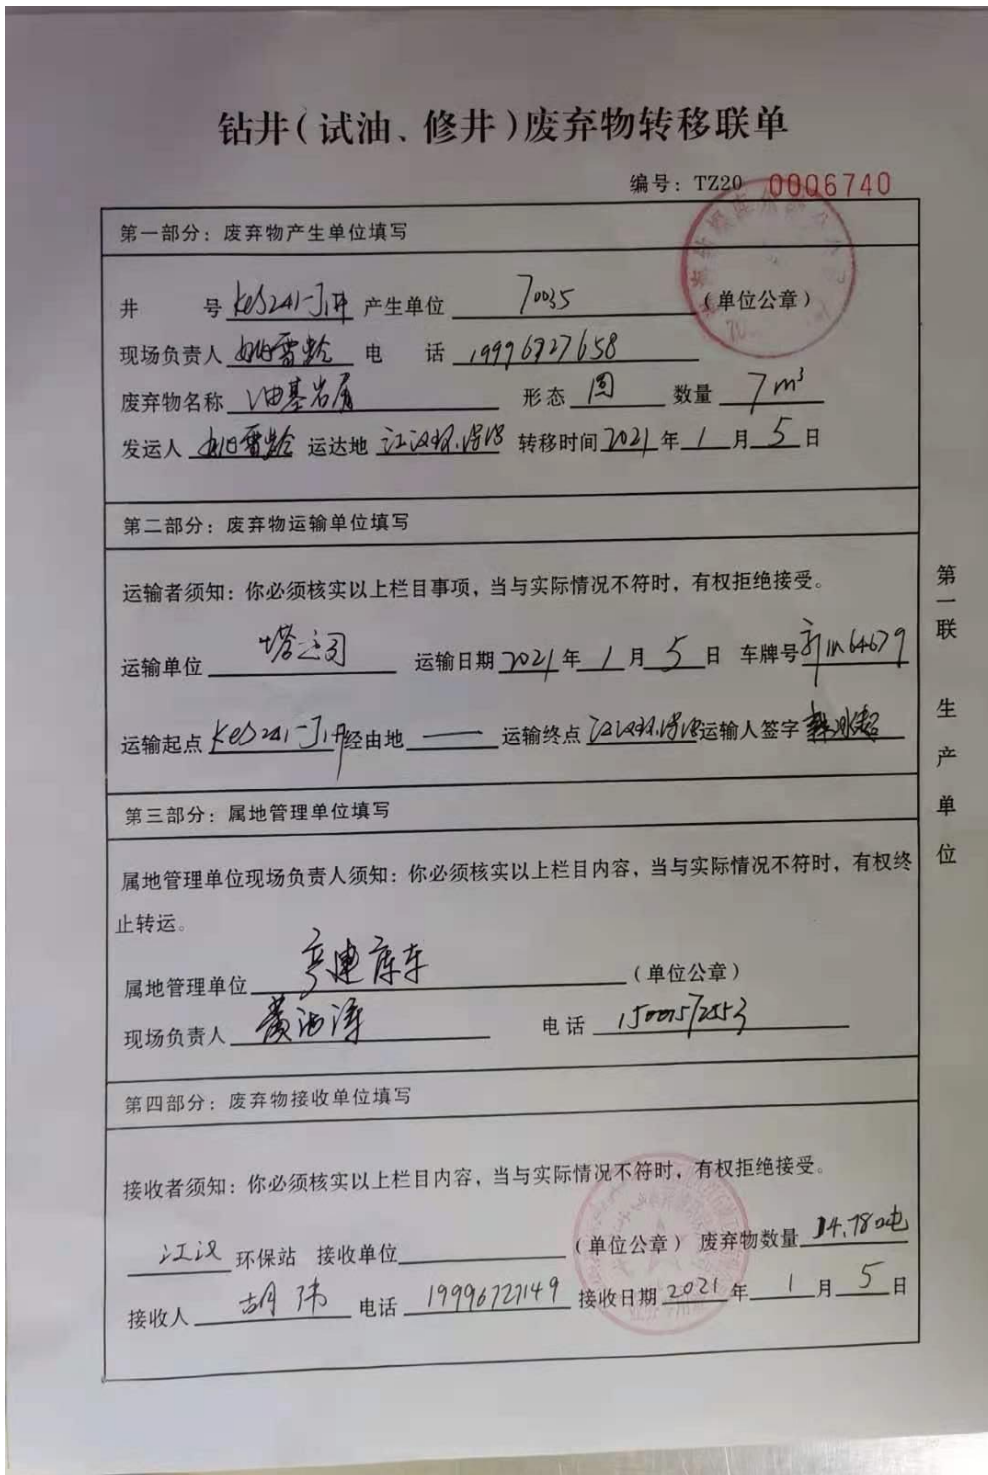 钻井(试油、修井)废弃物转移联单
编号: TZ20 0006740
第一部分: 废弃物产生单位填写
井 号 KeS241-J1井 产生单位 70035 (单位公章)
现场负责人 姚雷龄 电 话 19996727658
废弃物名称 油基岩屑 形态 固 数量 7m³
发运人 姚雷龄 运达地 江汉环保站 转移时间 2021 年 1 月 5 日
第二部分: 废弃物运输单位填写
运输者须知: 你必须核实以上栏目事项, 当与实际情况不符时, 有权拒绝接受。
运输单位 塔运司 运输日期 2021 年 1 月 5 日 车牌号 新 64679
运输起点 KeS241-J1井 经由地 —— 运输终点 江汉环保站 运输人签字
第三部分: 属地管理单位填写
属地管理单位现场负责人须知: 你必须核实以上栏目内容, 当与实际情况不符时, 有权终
止转运。
属地管理单位 库车 (单位公章)
现场负责人 黄 涛 电话
第四部分: 废弃物接收单位填写
接收者须知: 你必须核实以上栏目内容, 当与实际情况不符时, 有权拒绝接受。
江汉 环保站 接收单位 (单位公章) 废弃物数量 14.780吨
接收人 胡伟 电话 19996727149 接收日期 2021 年 1 月 5 日
第一联 生产单位